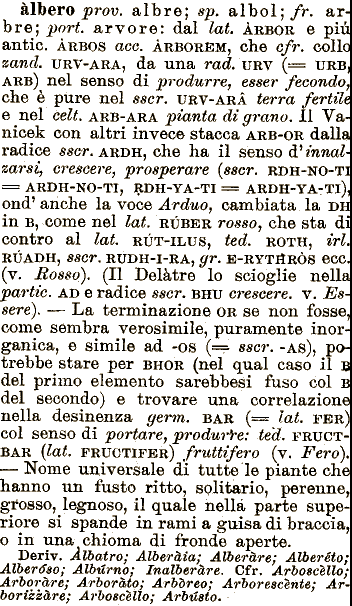 àlbero prov. albre; sp. albol; fr. ar-
bre; port. arvore: dal lat. ÀRBOR e più
antic. ÀRBOS acc. ÀRBOREM, che cfr. collo
zand. URV-ARA, da una rad. URV (= URB,
ARB) nel senso di produrre, esser fecondo,
che è pure nel sscr. URV-ARÂ terra fertile
e nel celt. ARB-ARA pianta di grano. Il Va-
nicek con altri invece stacca ARB-OR dalla
radice sscr. ARDH, che ha il senso d'innal-
zarsi, crescere, prosperare (sscr. RDH-NO-TI
= ARDH-NO-TI, RDH-YA-TI = ARDH-YA-TI),
ond' anche la voce Arduo, cambiata la DH
in B, come nel lat. RÚBER rosso, che sta di
contro al lat. RÚT-ILUS, ted. ROTH, irl.
RÚADH, sscr. RUDH-I-RA, gr. E-RYTHRÒS ecc.
(v. Rosso). (Il Delàtre lo scioglie nella
partic. AD e radice sscr. BHU crescere. v. Es-
sere). — La terminazione OR se non fosse,
come sembra verosimile, puramente inor-
ganica, e simile ad -OS (= sscr. -AS), po-
trebbe stare per BHOR (nel qual caso il B
del primo elemento sarebbesi fuso col B
del secondo) e trovare una correlazione
nella desinenza germ. BAR (= lat. FER)
col senso di portare, produrre: ted. FRUCT-
BAR (lat. FRUCTIFER) fruttifero (v. Fero).
— Nome universale di tutte le piante che
hanno un fusto ritto, solitario, perenne,
grosso, legnoso, il quale nella parte supe-
riore si spande in rami a guisa di braccia,
o in una chioma di fronde aperte.
Deriv. Àlbatro; Alberàia; Alberàre; Alberéto;
Alberóso; Albúrno; Inalberàre. Cfr. Arboscèllo;
Arboràre; Arboràto; Arbòreo; Arborescènte; Ar-
borizzàre; Arboscèllo; Arbústo.